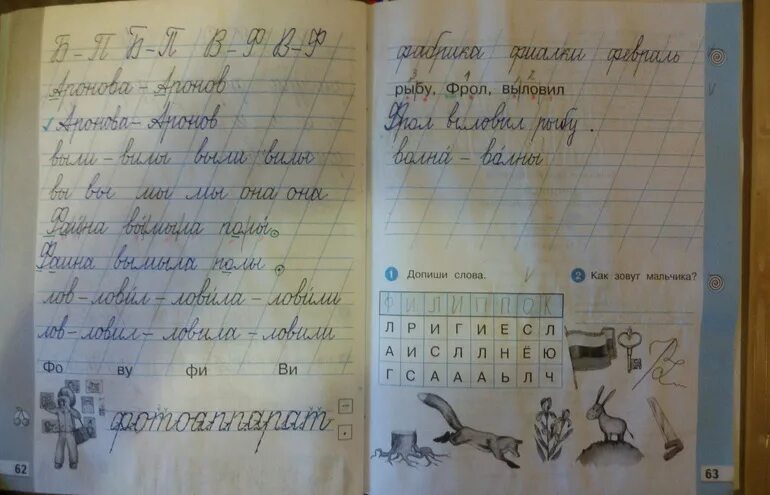 Б – П Б – П В – Ф В – Ф
Аронова – Аронов
Аронова – Аронов
выли – вилы выла вилы
вы вы мы мы она она
Фаина вы́мыла полы́.
Фаина вымыла полы.
лов – лови́л – лови́ла – лови́ли
лов – ловил – ловила – ловили
Фо ву фи Ви
фотоаппарат
62
фабрика фиалки февраль
3 1 2
рыбу, Фрол, выловил
Фрол выловил рыбу.
волна́ – во́лны
1 Допиши слова. 2 Как зовут мальчика?
Ф И Л И П П О К
Л Р И Г И Е С Л
А И С Л Л Н Ё Ю
Г С А А А Ь Л Ч
63